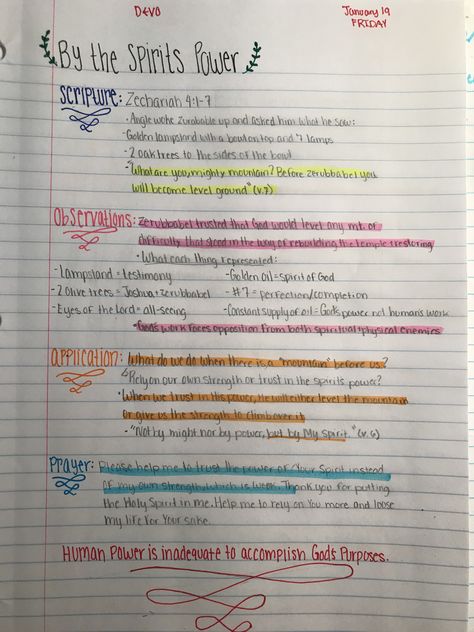 DEVO
January 19
FRIDAY
By the Spirits Power
Scripture: Zechariah 4:1-7
• Angle woke Zurobable up and asked him what he saw:
- Golden lampsland with a bowl on top and 7 lamps
- 2 oak trees to the sides of the bowl
- "What are you, mighty mountain? Before Zerubbabel you
will become level ground" (v.7)
Observations: Zerubbabel trusted that God would level any mt. of
difficulty that stood in the way of rebuilding the temple (restoring
• What each thing represented:
- Lampsland = testimony
- Golden oil = Spirit of God
- 2 Olive trees = Joshua + Zerubbabel
- #7 = perfection/completion
- Eyes of the Lord = all-seeing
- Constant supply of oil = God's power not human's work
• God's work faces opposition from both spiritual + physical enemies
Application: What do we do when there is a "mountain" before us?
Rely on our own strength or trust in the spirits power?
• When we trust in His power, He will either level the mountain
or give us the strength to climb over it
- "Not by might nor by power, but by My Spirit." (v.6)
Prayer: Please help me to trust the power of Your Spirit instead
of my own strength, which is weak. Thank you for putting
the Holy Spirit in me. Help me to rely on You more and loose
my life for Your sake.
Human Power is inadequate to accomplish God's Purposes.